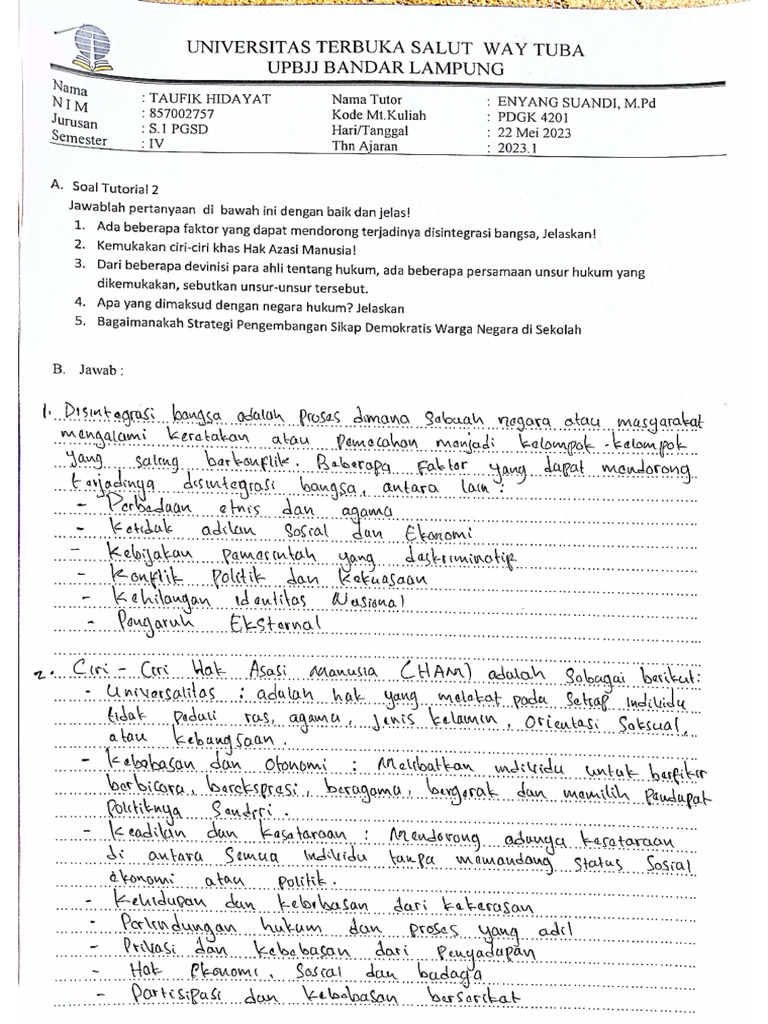 UNIVERSITAS TERBUKA SALUT WAY TUBA
UPBJJ BANDAR LAMPUNG
Nama : TAUFIK HIDAYAT Nama Tutor : ENYANG SUANDI, M.Pd
N I M : 857002757 Kode Mt.Kuliah : PDGK 4201
Jurusan : S.1 PGSD Hari/Tanggal : 22 Mei 2023
Semester : IV Thn Ajaran : 2023.1
A. Soal Tutorial 2
Jawablah pertanyaan di bawah ini dengan baik dan jelas!
1. Ada beberapa faktor yang dapat mendorong terjadinya disintegrasi bangsa, Jelaskan!
2. Kemukakan ciri-ciri khas Hak Azasi Manusia!
3. Dari beberapa devinisi para ahli tentang hukum, ada beberapa persamaan unsur hukum yang
dikemukakan, sebutkan unsur-unsur tersebut.
4. Apa yang dimaksud dengan negara hukum? Jelaskan
5. Bagaimanakah Strategi Pengembangan Sikap Demokratis Warga Negara di Sekolah
B. Jawab :
1. Disintegrasi bangsa adalah proses dimana sebuah negara atau masyarakat
mengalami keretakan atau pemecahan menjadi kelompok-kelompok
yang saling berkonflik. Beberapa faktor yang dapat mendorong
terjadinya disintegrasi bangsa, antara lain :
- Perbedaan etnis dan agama
- Ketidak adilan Sosial dan Ekonomi
- Kebijakan pemerintah yang deskriminatif
- Konflik politik dan kekuasaan
- Kehilangan identitas Nasional
- Pengaruh Eksternal
2. Ciri - Ciri Hak Asasi Manusia (HAM) adalah sebagai berikut:
- Universalitas : adalah hak yang melekat pada setiap individu
tidak peduli ras, agama, jenis kelamin, orientasi seksual,
atau kebangsaan.
- Kebebasan dan Otonomi : Melibatkan individu untuk berfikir
berbicara, berekspresi, beragama, bergerak dan memilih pendapat
politiknya sendiri.
- Keadilan dan kesetaraan : Mendorong adanya kesetaraan
di antara semua individu tanpa memandang status sosial
ekonomi atau politik.
- Kehidupan dan kebebasan dari kekerasan
- Perlindungan hukum dan proses yang adil
- Privasi dan kebebasan dari Penyadapan
- Hak Ekonomi, Sosial dan budaya
- Partisipasi dan kebebasan berserikat